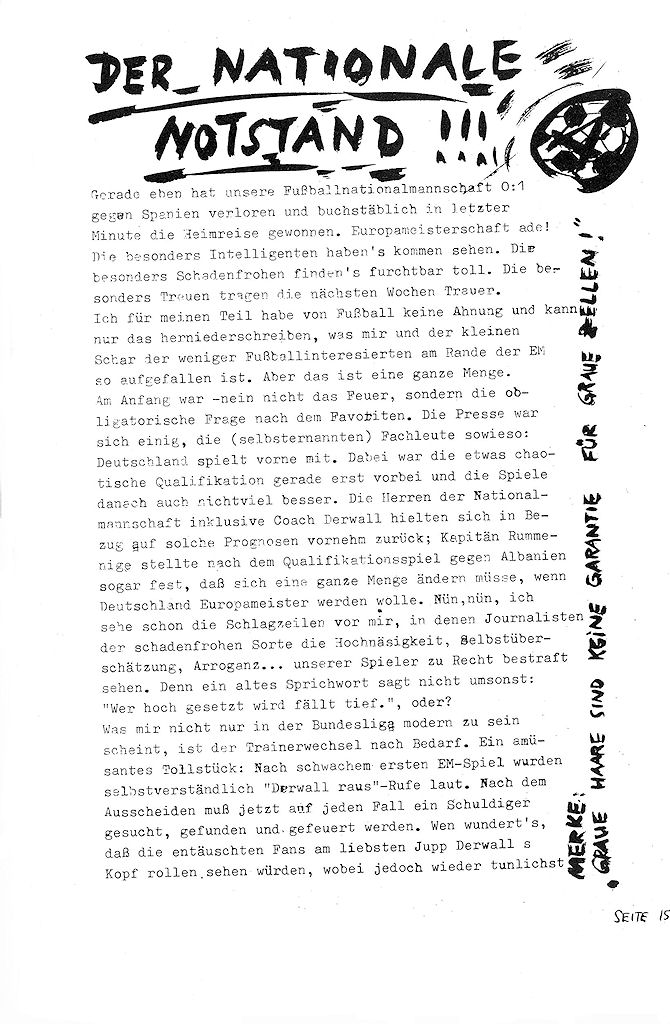 DER NATIONALE
NOTSTAND !!!
Gerade eben hat unsere Fußballnationalmannschaft 0:1
gegen Spanien verloren und buchstäblich in letzter
Minute die Heimreise gewonnen. Europameisterschaft ade!
Die besonders Intelligenten haben's kommen sehen. Die
besonders Schadenfrohen finden's furchtbar toll. Die be-
sonders Treuen tragen die nächsten Wochen Trauer.
Ich für meinen Teil habe von Fußball keine Ahnung und kann
nur das herniederschreiben, was mir und der kleinen
Schar der weniger Fußballinteresierten am Rande der EM
so aufgefallen ist. Aber das ist eine ganze Menge.
Am Anfang war -nein nicht das Feuer, sondern die ob-
ligatorische Frage nach dem Favoriten. Die Presse war
sich einig, die (selbsternannten) Fachleute sowieso:
Deutschland spielt vorne mit. Dabei war die etwas chao-
tische Qualifikation gerade erst vorbei und die Spiele
danach auch nichtviel besser. Die Herren der National-
mannschaft inklusive Coach Derwall hielten sich in Be-
zug auf solche Prognosen vornehm zurück; Kapitän Rumme-
nige stellte nach dem Qualifikationsspiel gegen Albanien
sogar fest, daß sich eine ganze Menge ändern müsse, wenn
Deutschland Europameister werden wolle. Nün,nün, ich
sehe schon die Schlagzeilen vor mir, in denen Journalisten
der schadenfrohen Sorte die Hochnäsigkeit, Selbstüber-
schätzung, Arroganz... unserer Spieler zu Recht bestraft
sehen. Denn ein altes Sprichwort sagt nicht umsonst:
"Wer hoch gesetzt wird fällt tief.", oder?
Was mir nicht nur in der Bundesliga modern zu sein
scheint, ist der Trainerwechsel nach Bedarf. Ein amü-
santes Tollstück: Nach schwachem ersten EM-Spiel wurden
selbstverständlich "Derwall raus"-Rufe laut. Nach dem
Ausscheiden muß jetzt auf jeden Fall ein Schuldiger
gesucht, gefunden und gefeuert werden. Wen wundert's,
daß die entäuschten Fans am liebsten Jupp Derwall s
Kopf rollen sehen würden, wobei jedoch wieder tunlichst
MERKE:
"GRAUE HAARE SIND KEINE GARANTIE FÜR GRAUE ZELLEN!"
SEITE 15